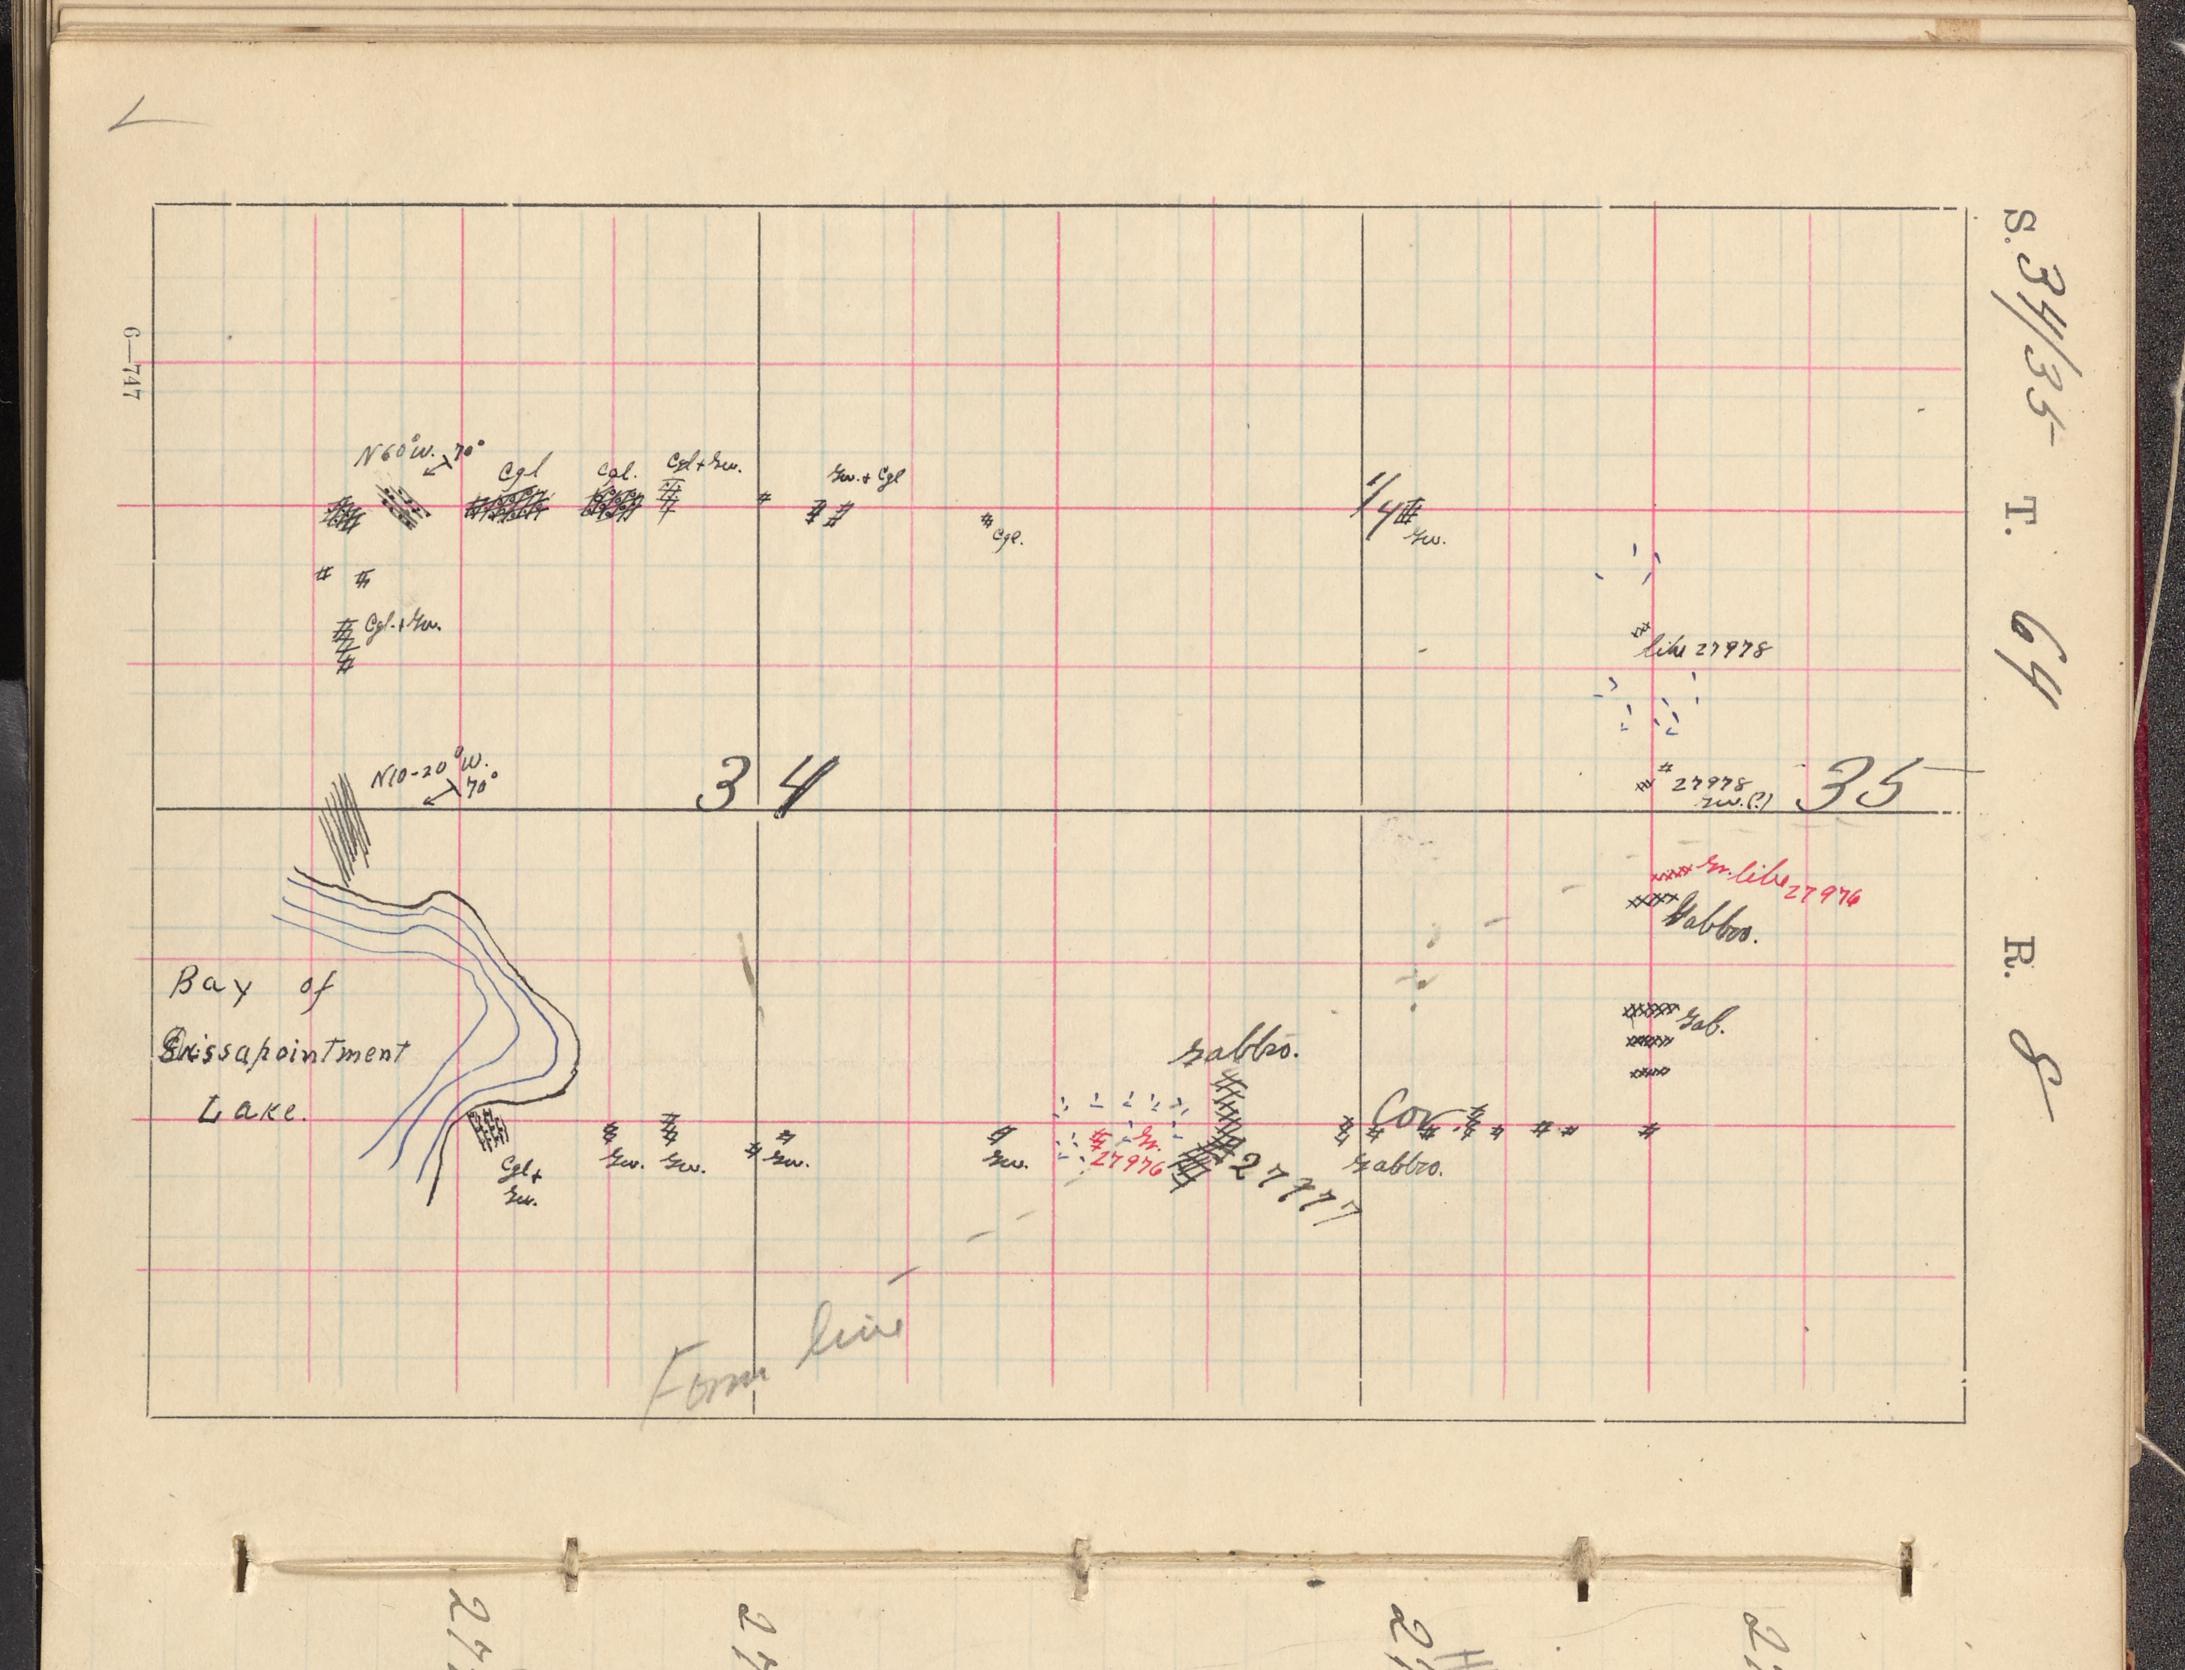 S. 34/35 T. 64 R. 8
6—747
N 60° W. 70°
Cgl
Cgl.
Cgl + Gw.
Gw. + Cgl
Cgl.
1/4
Gw.
Cgl. + Gw.
like 27978
N10-20° W.
70°
34
27978
Gw. (?)
35
Gr. like 27976
Gabbro.
Bay of
Dissapointment
Lake.
Gab.
Gabbro.
Cor.
Gabbro.
Cgl +
Gw.
Gw.
Gw.
Gw.
Gw.
Gr.
27976
27977
Form line